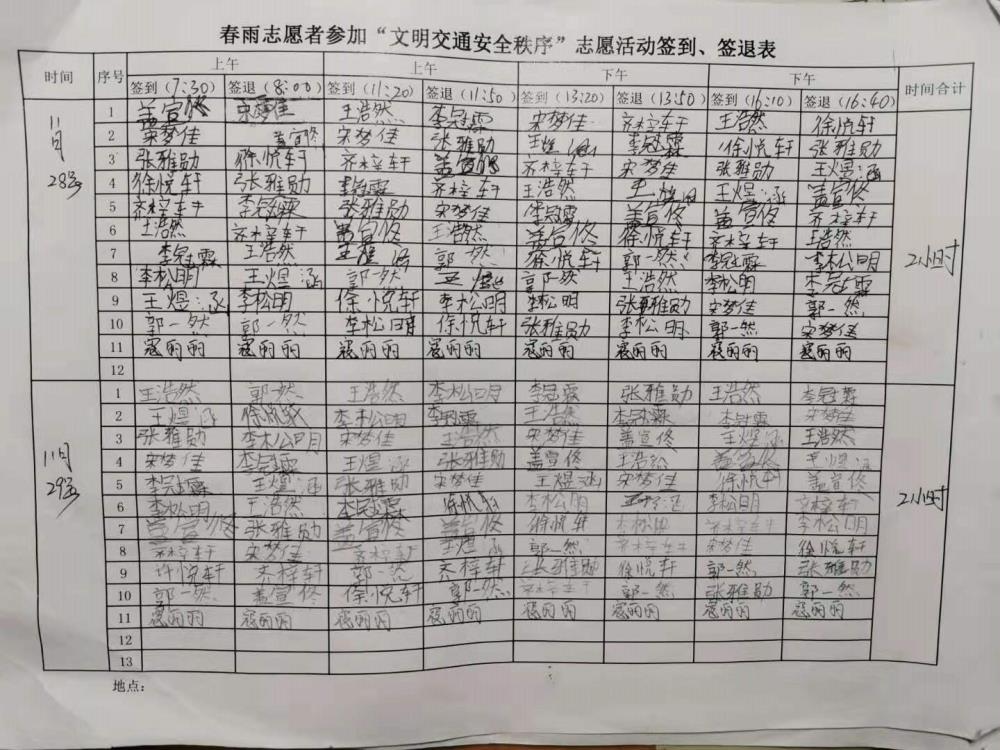 春雨志愿者参加“文明交通安全秩序”志愿活动签到、签退表
时间 序号 上午 上午 下午 下午 时间合计
签到(7:30) 签退(8:00) 签到(11:20) 签退(11:50) 签到(13:20) 签退(13:50) 签到(16:10) 签退(16:40)
11月28号 2小时
1 盖宣佟 宋梦佳 王浩然 李冠霖 宋梦佳 齐梓轩 王浩然 徐悦轩
2 宋梦佳 盖宣佟 宋梦佳 张雅勋 王煜涵 李冠霖 徐悦轩 张雅勋
3 张雅勋 徐悦轩 齐梓轩 盖宣佟 齐梓轩 宋梦佳 张雅勋 王煜涵
4 徐悦轩 张雅勋 李冠霖 齐梓轩 王浩然 王煜涵 王煜涵 盖宣佟
5 齐梓轩 李冠霖 张雅勋 宋梦佳 李冠霖 盖宣佟 盖宣佟 齐梓轩
6 王浩然 齐梓轩 盖宣佟 王浩然 盖宣佟 徐悦轩 齐梓轩 王浩然
7 李冠霖 王浩然 王煜涵 郭一然 徐悦轩 郭一然 李冠霖 李松明
8 李松明 王煜涵 郭一然 王煜涵 郭一然 王浩然 李松明 李冠霖
9 王煜涵 李松明 徐悦轩 李松明 李松明 张雅勋 宋梦佳 郭一然
10 郭一然 郭一然 李松明 徐悦轩 张雅勋 李松明 郭一然 宋梦佳
11 寇丽丽 寇丽丽 寇丽丽 寇丽丽 寇丽丽 寇丽丽 寇丽丽 寇丽丽
12
11月29号 2小时
1 王浩然 郭一然 王浩然 李松明 李冠霖 张雅勋 王浩然 李冠霖
2 王煜涵 徐悦轩 李松明 李冠霖 王浩然 李冠霖 李冠霖 宋梦佳
3 张雅勋 李松明 宋梦佳 王浩然 宋梦佳 盖宣佟 王煜涵 王浩然
4 宋梦佳 李冠霖 王煜涵 张雅勋 盖宣佟 王浩然 盖宣佟 王煜涵
5 李冠霖 王煜涵 张雅勋 宋梦佳 王煜涵 宋梦佳 徐悦轩 盖宣佟
6 李松明 王浩然 李冠霖 徐悦轩 李松明 李松明 齐梓轩
7 盖宣佟 张雅勋 盖宣佟 盖宣佟 徐悦轩 李松明 齐梓轩 李松明
8 齐梓轩 宋梦佳 齐梓轩 王煜涵 郭一然 齐梓轩 宋梦佳 徐悦轩
9 许悦轩 齐梓轩 郭一然 齐梓轩 张雅勋 徐悦轩 郭一然 张雅勋
10 郭一然 盖宣佟 徐悦轩 郭一然 齐梓轩 郭一然 张雅勋 郭一然
11 寇丽丽 寇丽丽 寇丽丽 寇丽丽 寇丽丽 寇丽丽 寇丽丽 寇丽丽
12
13
地点：